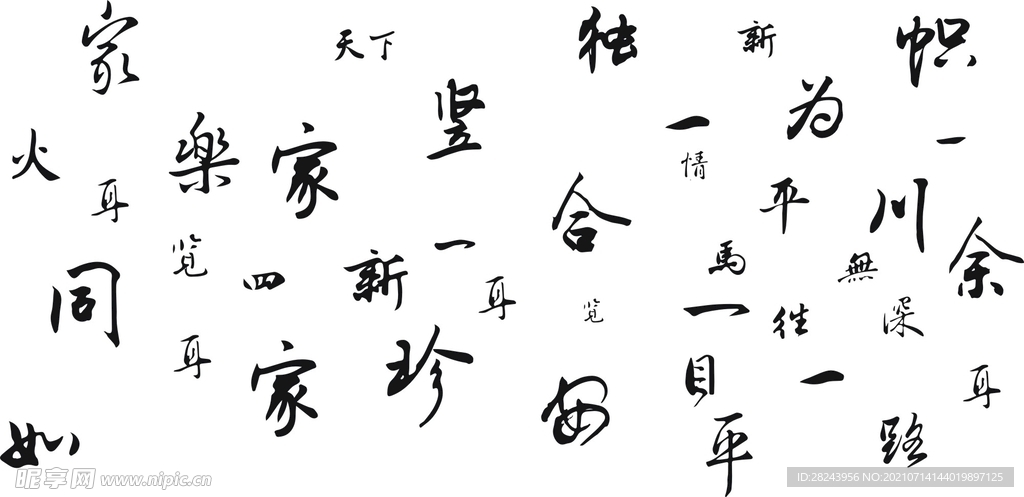 家
天下
独
新
帜
竖
为
一
一
火
樂
家
情
耳
平
合
川
余
览
一
馬
無
四
新
耳
同
览
一
往
深
耳
家
珍
目
一
耳
安
如
平
路
昵享网 www.nipic.cn
ID:28243956 NO:20210714144019897125